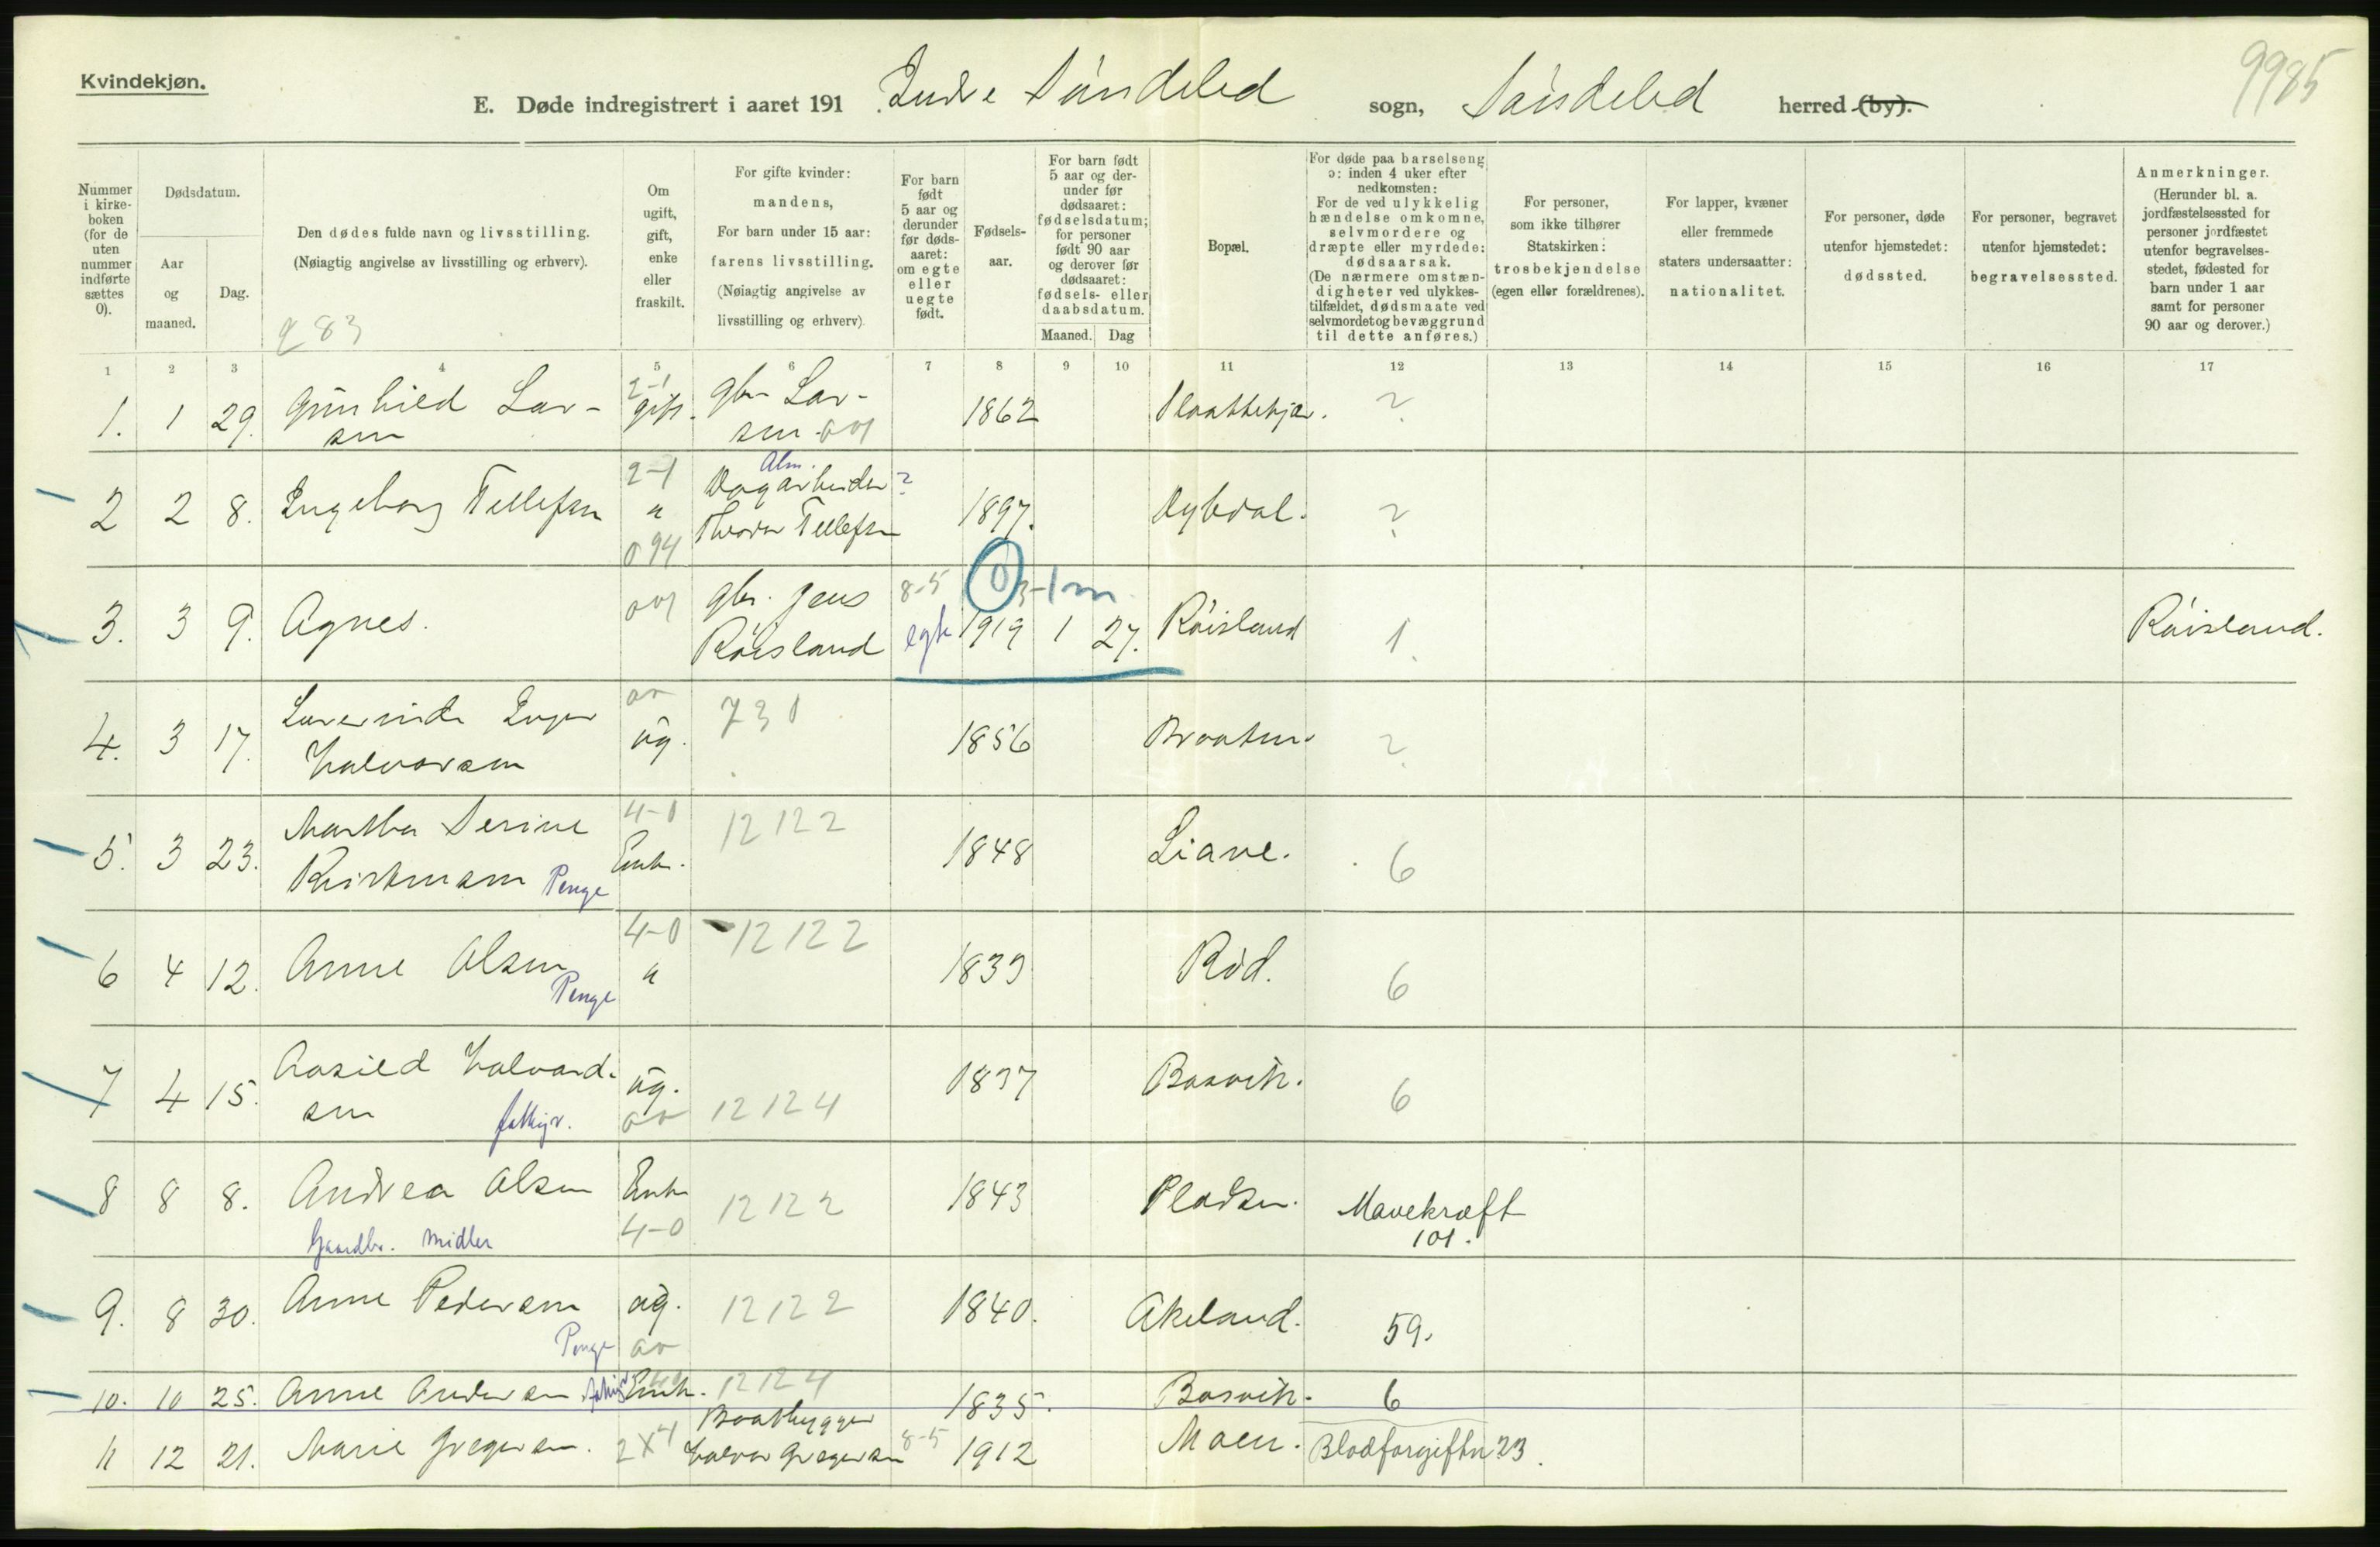 Kvindekjøn.
9985
E. Døde indregistrert i aaret 191 . Indre Søndeled sogn, Søndeled herred (by).
Nummer i kirke-boken (for de uten nummer indførte sættes 0).
Dødsdatum.
Aar og maaned.
Dag.
Den dødes fulde navn og livsstilling.
(Nøiagtig angivelse av livsstilling og erhverv).
283
Om ugift, gift, enke eller fraskilt.
For gifte kvinder: mandens,
For barn under 15 aar: farens livsstilling.
(Nøiagtig angivelse av livsstilling og erhverv).
For barn født 5 aar og derunder før døds-aaret: om egte eller uegte født.
Fødsels-aar.
For barn født 5 aar og der-under før dødsaaret: fødselsdatum; for personer født 90 aar og derover før dødsaaret: fødsels- eller daabsdatum.
Maaned. Dag
Bopæl.
For døde paa barselseng ɔ: inden 4 uker efter nedkomsten:
For de ved ulykkelig hændelse omkomne, selvmordere og dræpte eller myrdede: dødsaarsak.
(De nærmere omstæn-digheter ved ulykkes-tilfældet, dødsmaate ved selvmordet og bevæggrund til dette anføres.)
For personer, som ikke tilhører Statskirken: trosbekjendelse (egen eller forældrenes).
For lapper, kvæner eller fremmede staters undersaatter: nationalitet.
For personer, døde utenfor hjemstedet: dødssted.
For personer, begravet utenfor hjemstedet: begravelsessted.
Anmerkninger.
(Herunder bl. a. jordfæstelsessted for personer jordfæstet utenfor begravelses-stedet, fødested for barn under 1 aar samt for personer 90 aar og derover.)
1 2 3 4 5 6 7 8 9 10 11 12 13 14 15 16 17
1. 1 29. Gunhild Lar-sen 2-1 gift. gbr Lar-sen 001 1862 ?
2 2 8. Ingeborg Tellefsen 2-1 " 094 Alm. Dagarbeider ? Tellefsen 1897. Dybdal. ?
3. 3 9. Agnes. 001 gbr. Jens Røisland 8-5 egte 0 3-1m 1919 1 27. Røisland 1. Røisland.
4. 3 17. Inger Halvorsen ao ug. 730 1856 Braaten. ?
5. 3 23. Martha Serine Kristensen Penge 4-0 Enke. 12122 1848 Liane. 6
6 4 12. Anne Olsen Penge 4-0 " 12122 1839 Rød. 6
7 4 15. Aasild Halvord-sen fattigv. ug. ao 12124 1837 Bosvik. 6
8 8 8. Andrea Olsen Gaardbr. midler Enke 4-0 12122 1843 Pladsen. Mavekræft 101.
9. 8 30. Anne Pedersen Penge ug. ao 12122 1840. Akeland. 59.
10. 10 25. Anne Andersen fattigv. Enke. 12124 1835. Bosvik. 6
11 12 21. Marie Gregersen. 2X4 Baatbygger Halvor Gregersen 8-5 1912 Moen. Blodforgiftn 23.